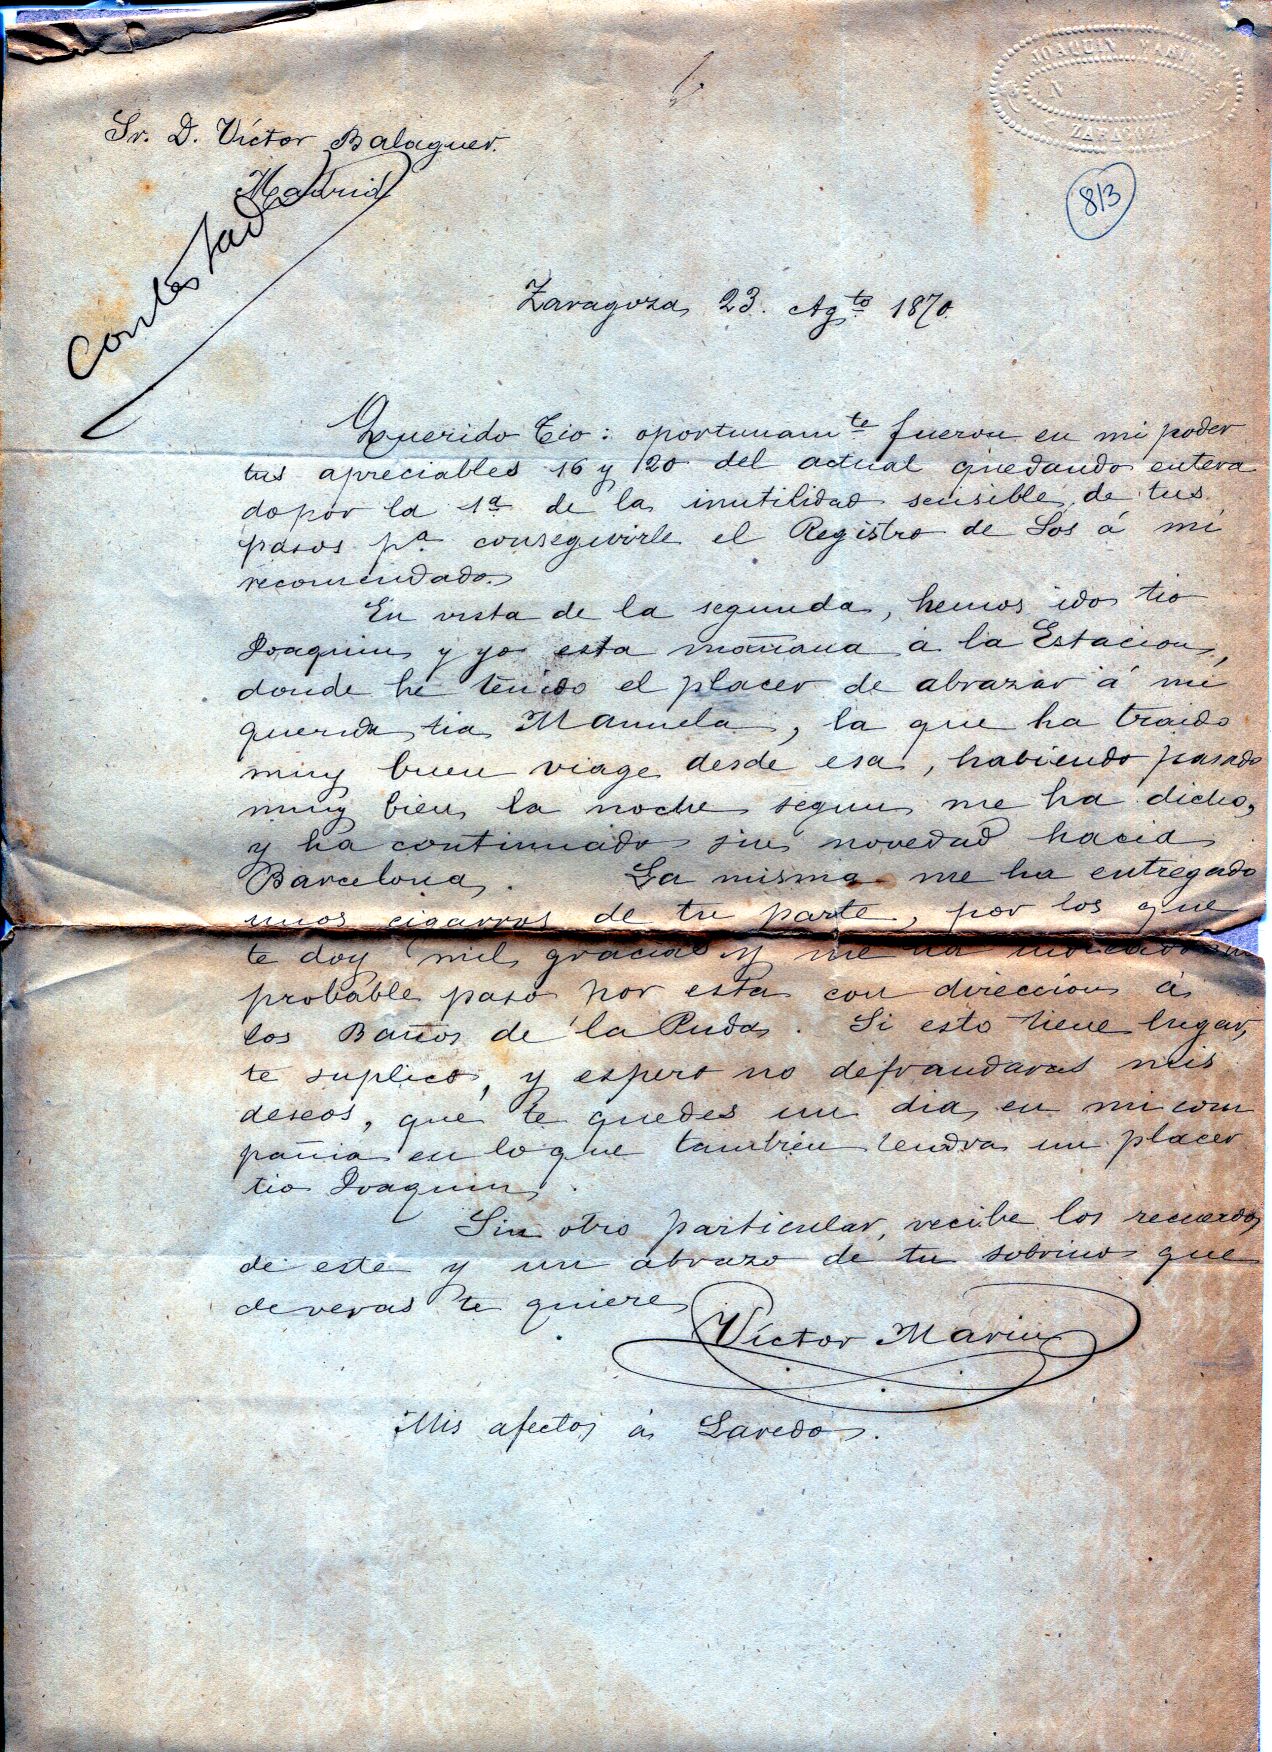 JOAQUIN MARIN
ZARAGOZA
Sr. D. Víctor Balaguer.
Madrid
Contestad
813
Zaragoza 23. Agto 1870.
Querido Tio: oportunamte fueron en mi poder
tus apreciables 16 y 20 del actual quedando entera
do por la 1a de la inutilidad sensible de tus
pasos pa conseguirle el Registro de Sos á mi
recomendado.
En vista de la segunda, hemos ido tio
Joaquin y yo esta mañana a la Estacion,
donde he tenido el placer de abrazar á mi
querida tia Manuela, la que ha traido
muy buen viage desde esa, habiendo pasado
muy bien la noche segun me ha dicho,
y ha continuado sin novedad hacia
Barcelona. La misma me ha entregado
unos cigarros de tu parte, por los que
te doy mil gracias y me ha indicado
probable paso por esta con direccion á
los Baños de la Puda. Si esto tiene lugar,
te suplico, y espero no defraudaras mis
deseos, que te quedes un dia en mi com
pañia en lo que tambien tendra un placer
tio Joaquin.
Sin otro particular, recibe los recuerdos
de este y un abrazo de tu sobrino que
de veras te quiere
Víctor Marin
Mis afectos á Laredo.